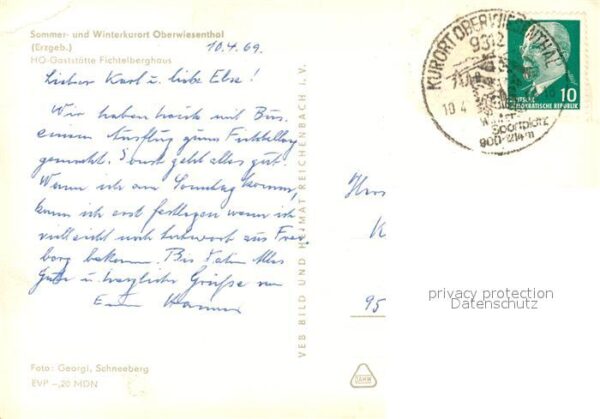 Sommer- und Winterkurort Oberwiesenthal
(Erzgeb.)
HO-Gaststätte Fichtelberghaus
10.4.69.
Lieber Karl u. liebe Else!
Wir haben heute mit Bus
einen Ausflug zum Fichtelberg
gemacht. Sonst geht alles gut.
Wann ich am Sonntag komme,
kann ich erst festlegen wenn ich
vielleicht noch Antwort aus Frei
berg bekomme. Bis dahin Alles
Gute u. herzliche Grüße von
VEB BILD UND HEIMAT REICHENBACH I. V.
KURORT OBERWIESENTHAL
9312
10.4
Sportplatz
900-1214m
10
DEUTSCHE
DEMOKRATISCHE REPUBLIK
95
privacy protection
Datenschutz
Foto: Georgi, Schneeberg
EVP -,20 MDN